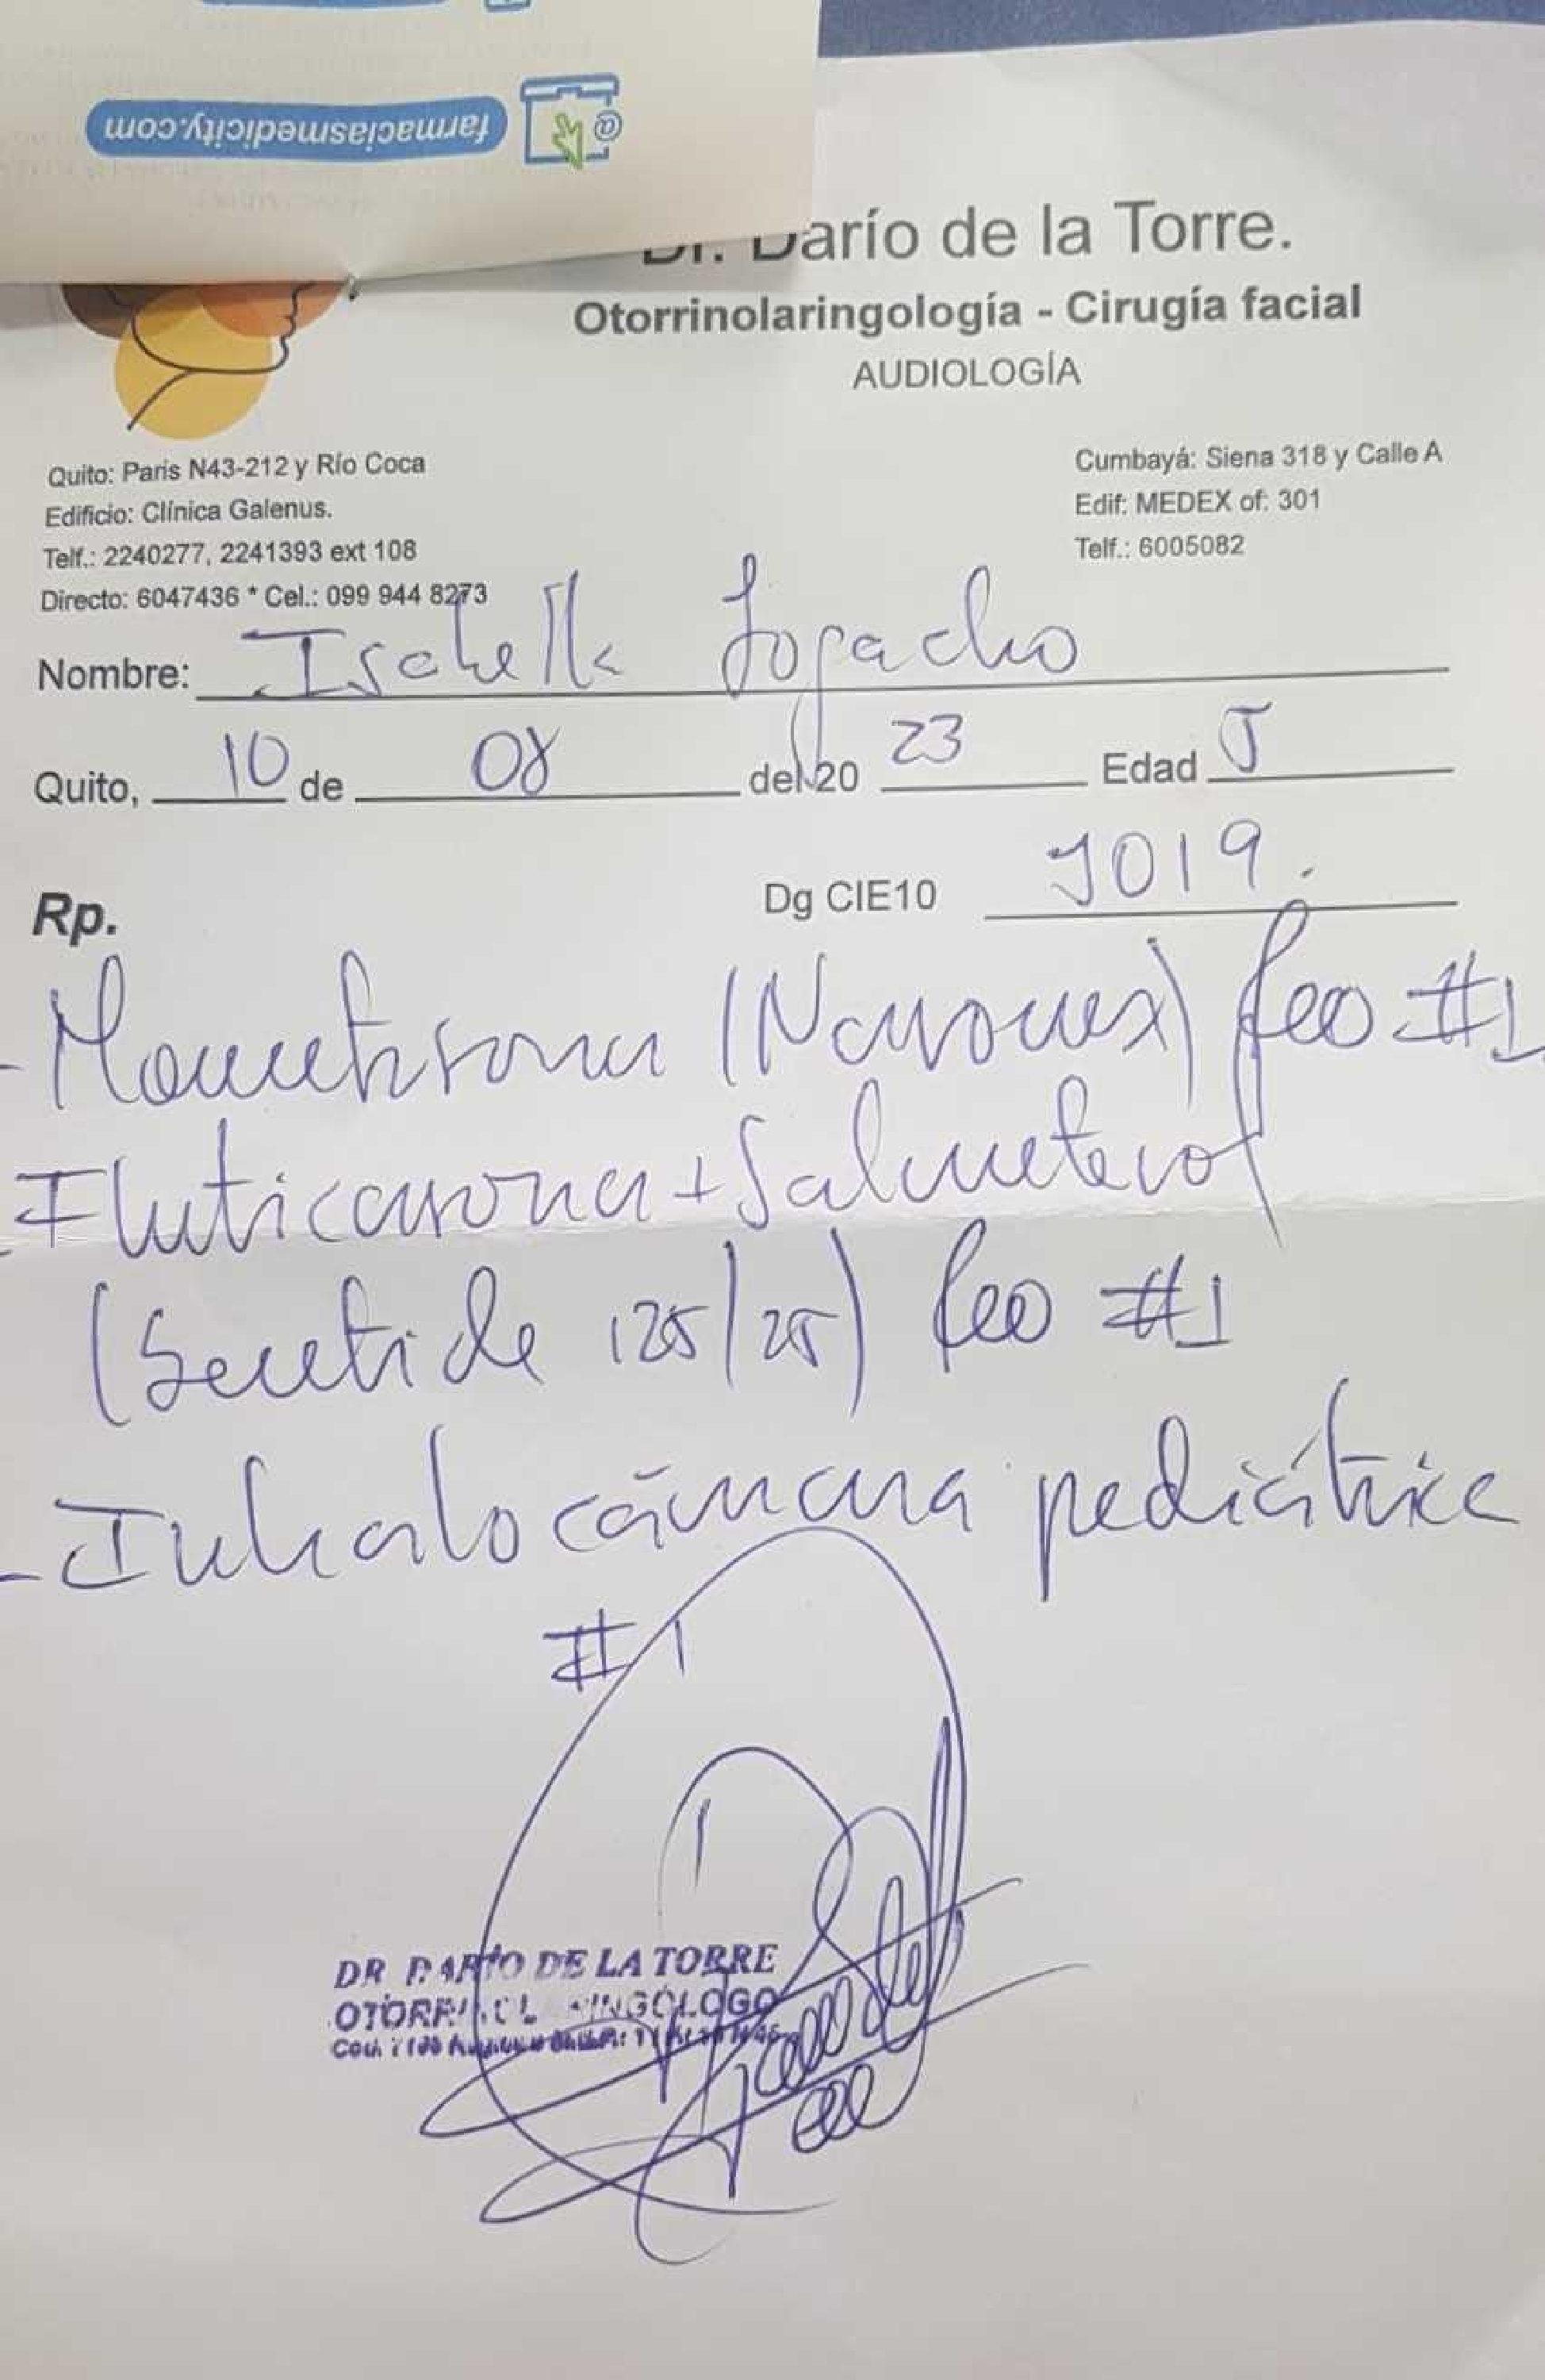 farmaciasmedicity.com
Dr. Darío de la Torre.
Otorrinolaringología - Cirugía facial
AUDIOLOGÍA
Quito: Paris N43-212 y Río Coca
Edificio: Clínica Galenus.
Telf.: 2240277, 2241393 ext 108
Directo: 6047436 * Cel.: 099 944 8273
Cumbayá: Siena 318 y Calle A
Edif: MEDEX of: 301
Telf.: 6005082
Nombre: Isabella
Quito, 10 de 08 del 20 23 Edad 5
Dg CIE10 J019.
Rp.
- Mometasona (Nasonex) fco #1
- Fluticasona + Salmeterol
(Seretide 125/25) fco #1
- Inhalocámara pediátrica
#1
DR DARÍO DE LA TORRE
OTORRINOLARINGÓLOGO